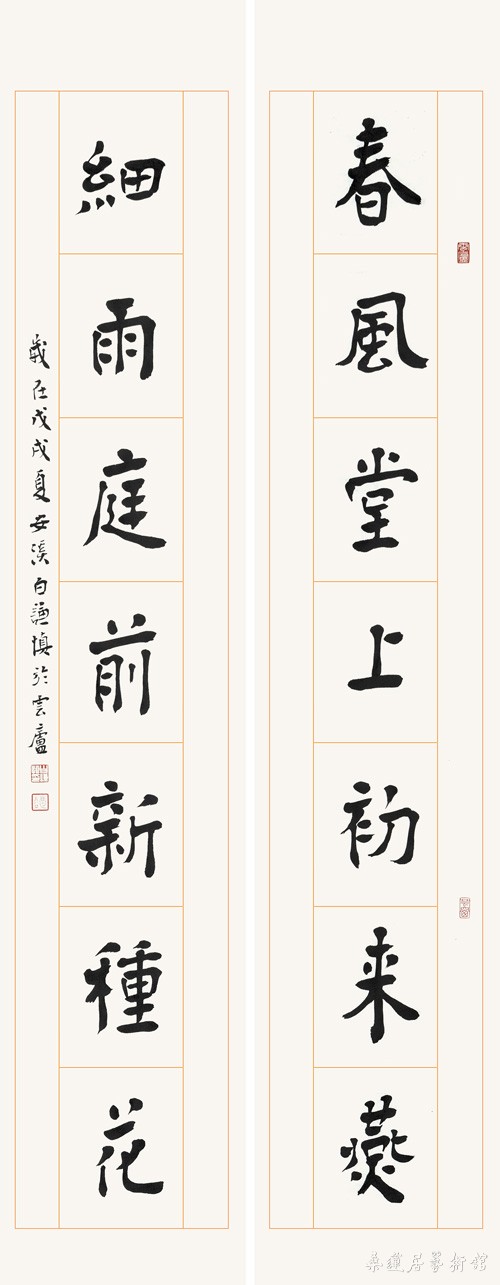 春風堂上初来燕
細雨庭前新種花
歲在戊戌夏安溪白謙慎於雲廬
桑蓮居藝術館